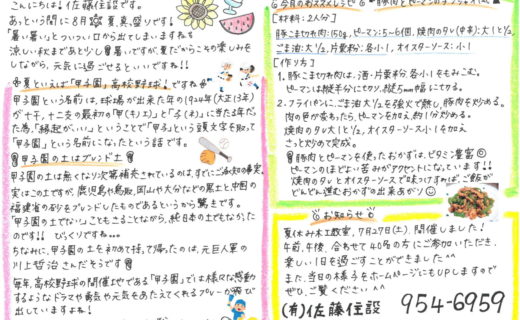 こんにちは!佐藤住設です。
あっという間に8月 夏真っ盛りです!
「暑い」と、ついつい口から出てしまいますね
涼しい秋まであと少し 暑いですが、夏だからこその楽しみを
しながら、元気に過ごせるといいですね!!
夏といえば「甲子園」高校野球!ですね
甲子園という名前は、球場が出来た年の1924年(大正13年)
が十干、十二支の最初の「甲(キノエ)」と「子(ネ)」に当たる年だっ
た為、「縁起がいい」ということで「甲子」という頭文字を取って
「甲子園」という名前になったという話です
甲子園の土はブレンド土
甲子園の土は無くなり次第補充されているのは、すでにご承知の事実、
実はこの土ですが、鹿児島や鳥取、岡山や大分などの黒土と中国の
福建省の砂をブレンドしたものであるというから驚きです。
「甲子園の土でない」こともさることながら、純日本の土でもなかった
のです!! びっくりですね...
ちなみに、甲子園の土を初めて持って帰ったのは、元巨人軍の
川上哲治さんだそうです
毎年、高校野球の開催地である「甲子園」では様々な感動
するようなドラマや勇気や元気をあたえてくれるプレーが飛び
出していますね!
今月のおススメレシピ
豚肉とピーマンの
[材料:2人分]
豚こま切れ肉:150g、ピーマン:5〜6個、焼肉のタレ(中辛):大1 1/2、
ごま油:大1/2、片栗粉:各小1、オイスターソース:小1
[作り方]
1. 豚こま切れ肉は、酒・片栗粉各小1をもみこむ。
ピーマンは種をとり、縦5mm幅に切る。
2. フライパンに、ごま油大1/2を強火で熱し、豚肉を炒める。
肉の色が変ったら、ピーマンを加え約1分炒める。
焼肉のタレ大1 1/2、オイスターソース小1を加え
さっと炒めて完成。
豚肉とピーマンを使ったおかずは、ビタミン豊富
ピーマンのほどよい苦みがアクセントになっています!!
焼肉のタレとオイスターソースで味つけすれば、ご飯が
どんどん進むおかずの出来あがり
お知らせ
夏休み木工教室、7月27日(土)、開催しました!
午前、午後、合わせて40名の方にご参加いただき、
楽しい1日を過ごすことができました ^^
また、当日の様子をホームページにもUPしますので
ぜひ、ご覧ください ^^
(有)佐藤住設 954-6959